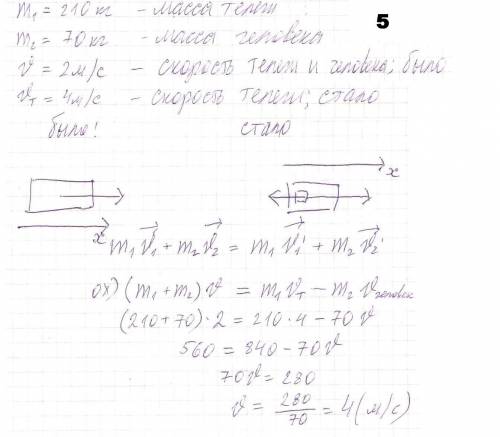 m₁ = 210 кг - масса телеги
5
m₂ = 70 кг - масса человека
v = 2 м/с - скорость телеги и человека; было
vₜ = 4 м/с - скорость телеги; стало
было! стало
x
x
m₁v⃗₁ + m₂v⃗₂ = m₁v⃗₁' + m₂v⃗₂'
ох) (m₁ + m₂) v = m₁vₜ - m₂v человек
(210 + 70) · 2 = 210 · 4 - 70 v
560 = 840 - 70 v
70 v = 280
v = 280/70 = 4 (м/с)